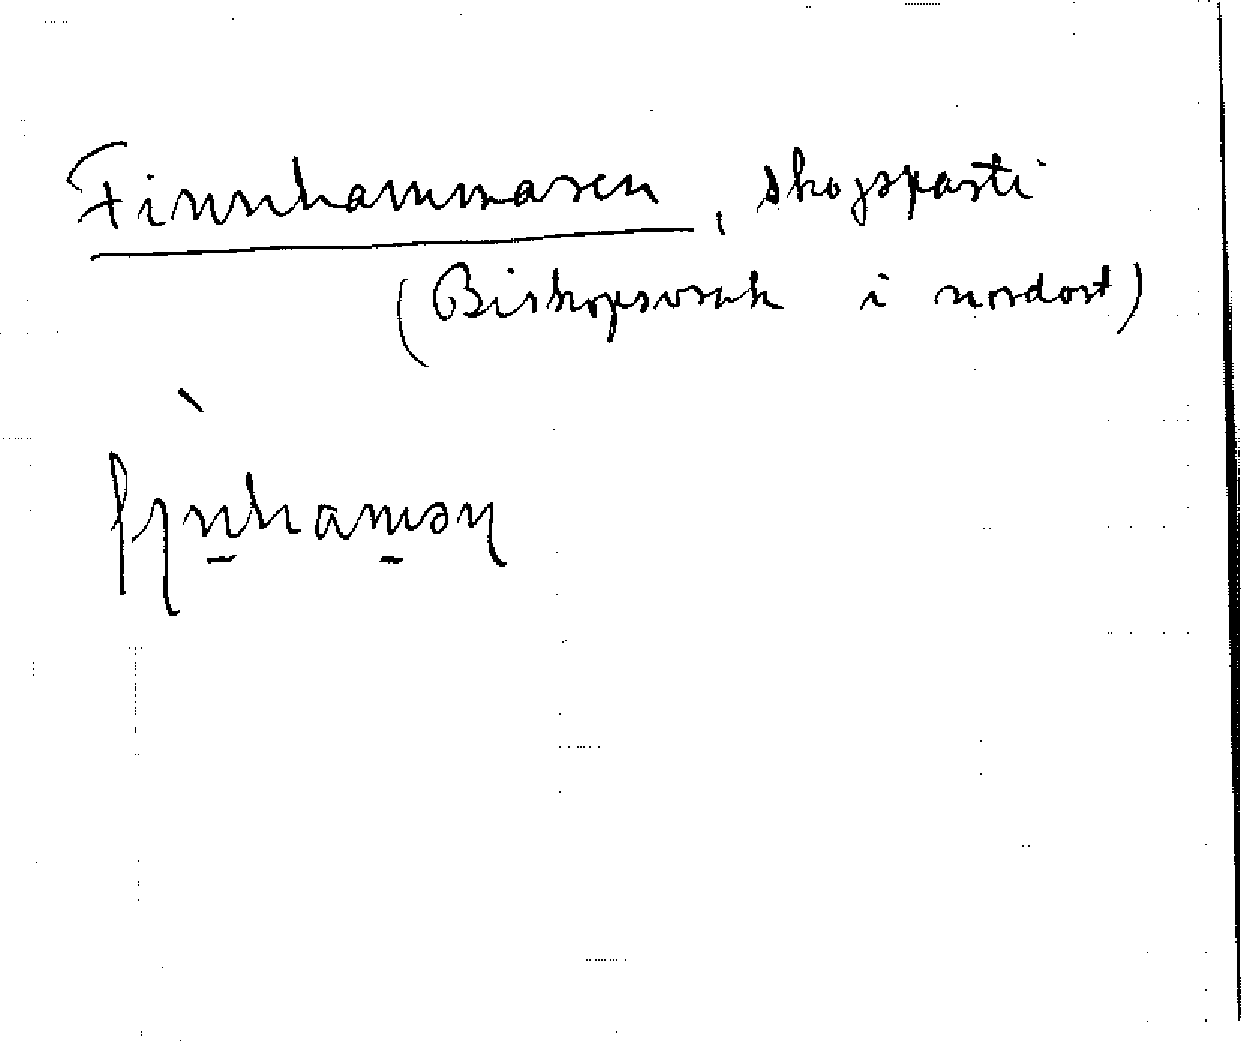 Finnhammaren, skogsparti
(Biskopsvrak i nordost)
fìn̲ham̲ən